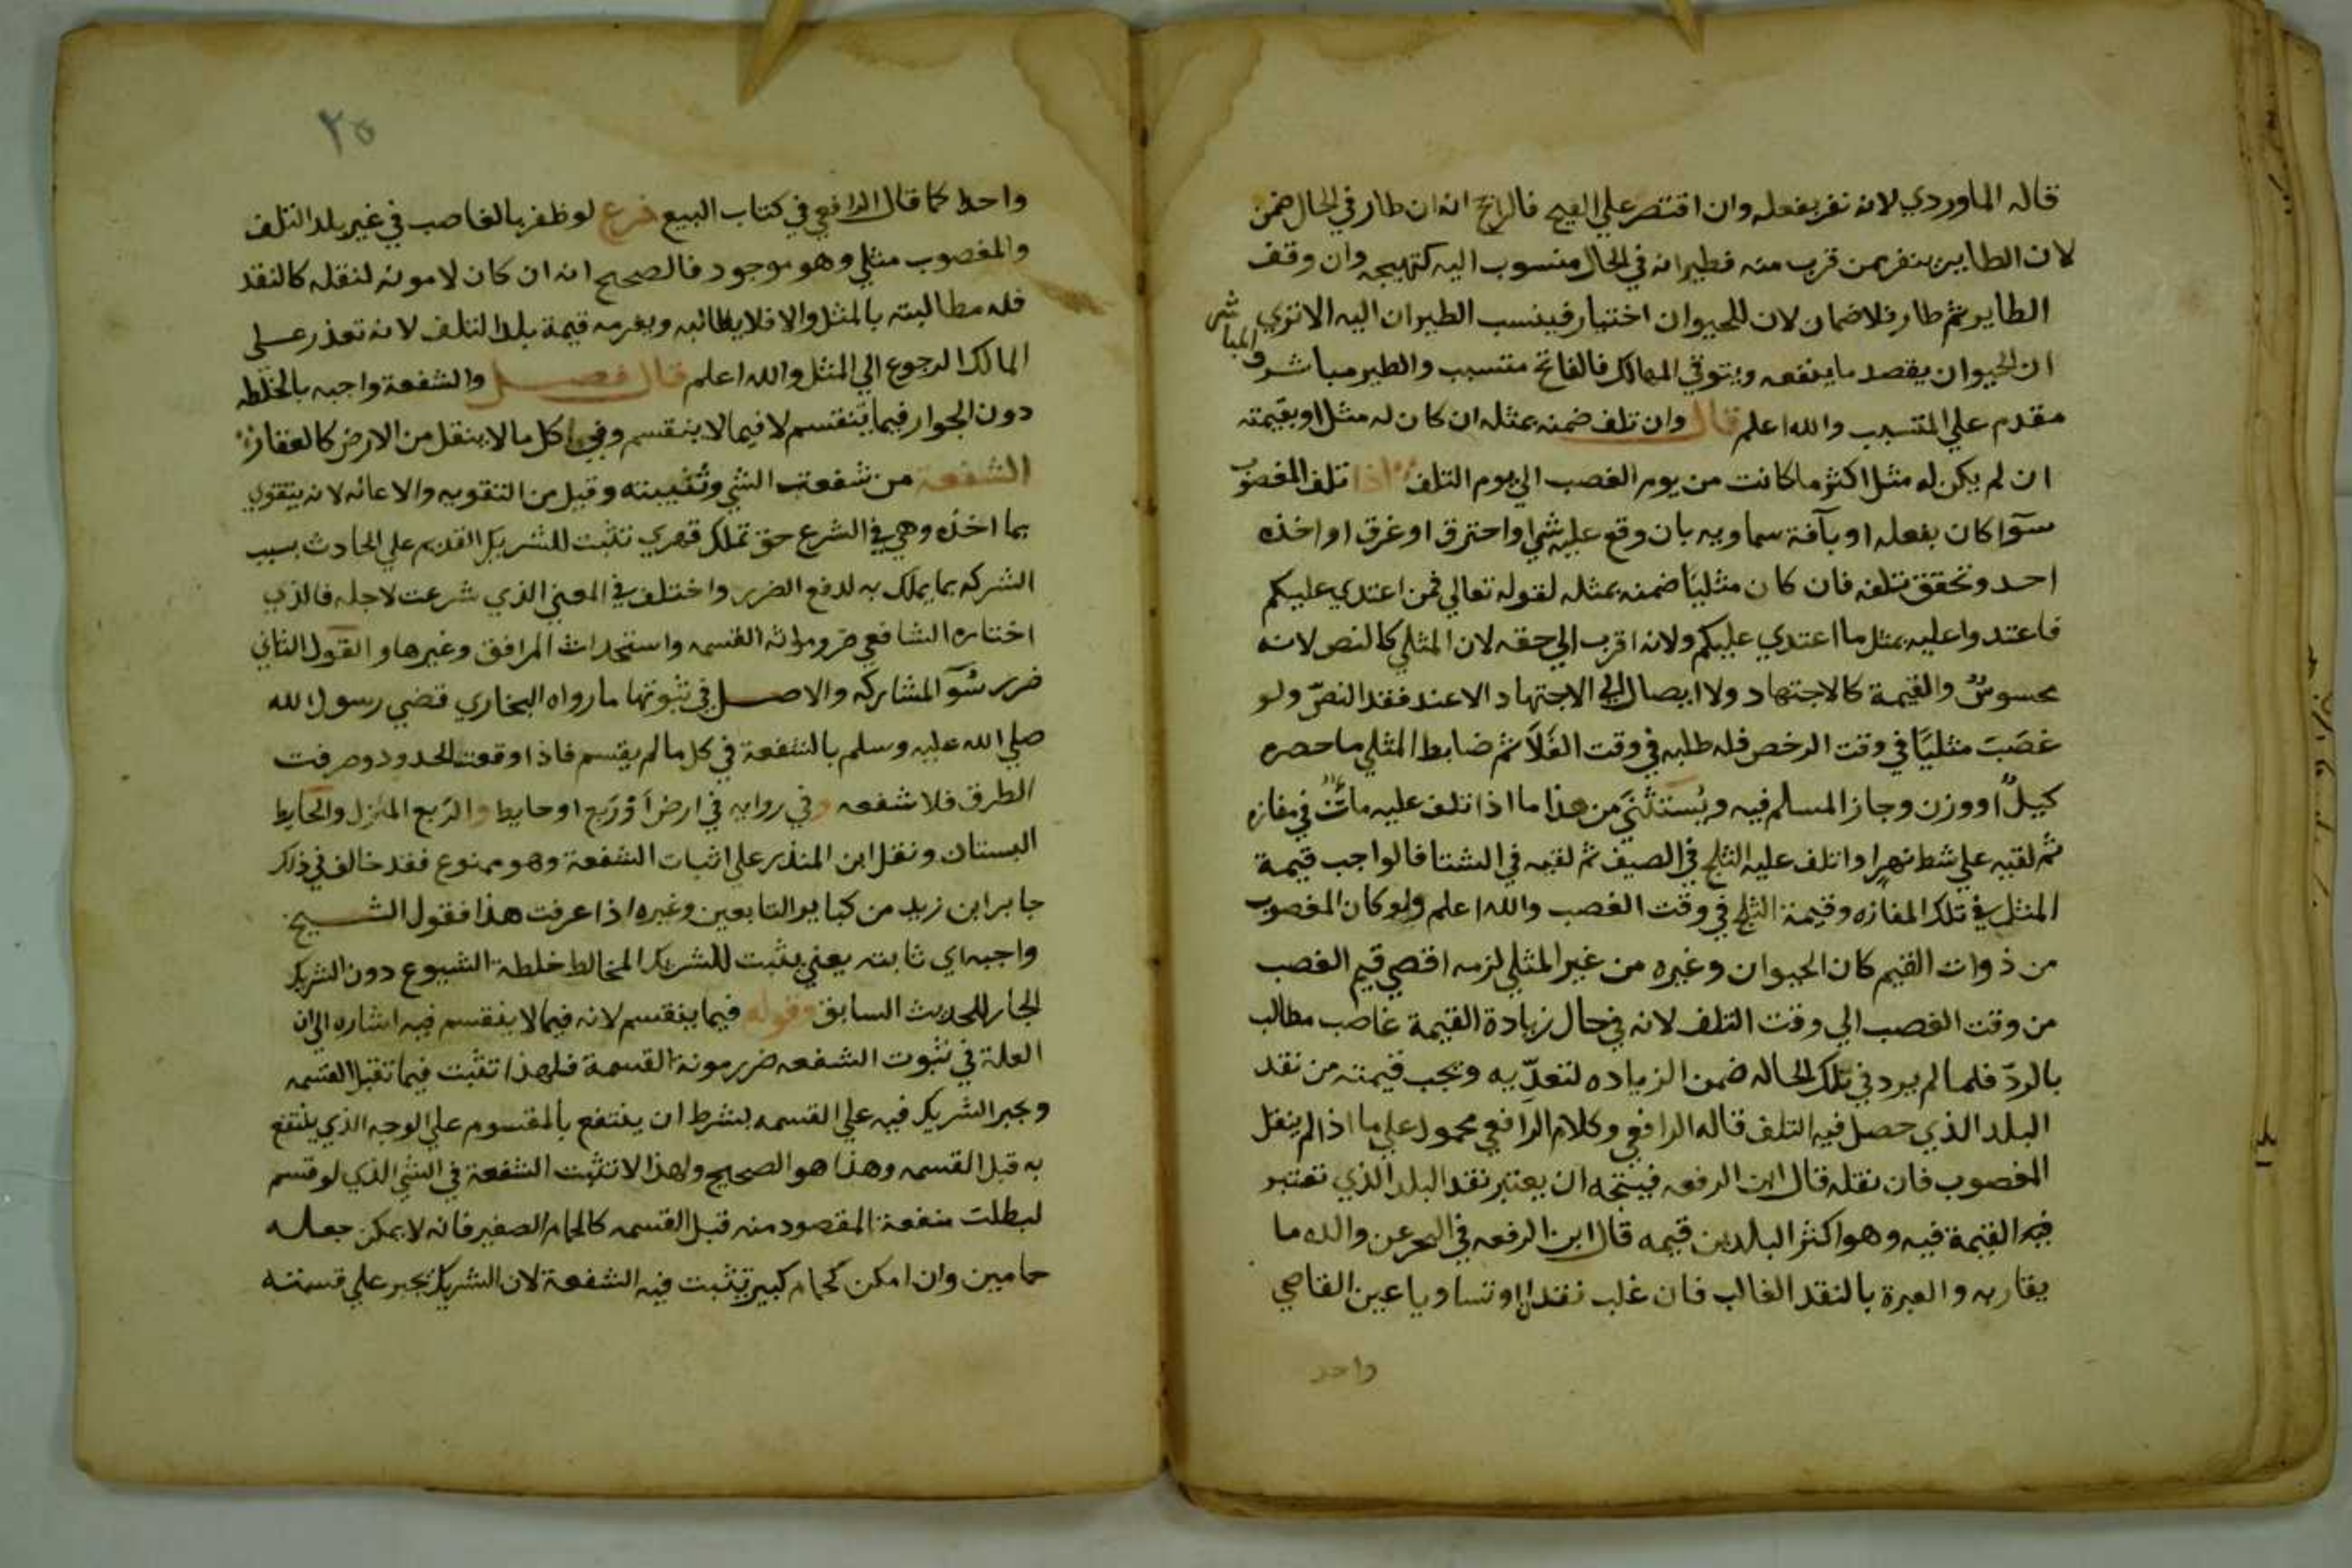 قاله الماوردي لانه نفر بفعله وان اقتصر علي الفتح فالراجح انه ان طار في الحال ضمن
لان الطاير ينفر ممن قرب منه فطيرانه في الحال منسوب اليه كتهييجه وان وقف
الطاير ثم طار فلا ضمان لان للحيوان اختيار فينسب الطيران اليه الا تري
ان الحيوان يقصد ما ينفعه ويتوقي المهالك فالفاتح متسبب والطير مباشر والمباشر
مقدم علي المتسبب والله اعلم قال وان تلف ضمنه بمثله ان كان له مثل او بقيمته
ان لم يكن له مثل اكثر ما كانت من يوم الغصب الي يوم التلف اذا تلف المغصوب
سوآ كان بفعله او بآفة سماويه بان وقع عليه شي او احترق او غرق او اخذه
احد وتحقق تلفه فان كان مثليا ضمنه بمثله لقوله تعالي فمن اعتدي عليكم
فاعتدوا عليه بمثل ما اعتدي عليكم ولانه اقرب الي حقه لان المثلي كالنص لانه
محسوس والقيمة كالاجتهاد ولا ايصال الي الاجتهاد الا عند فقد النص ولو
غصب مثليا في وقت الرخص فله طلبه في وقت الغلا ثم ضابط المثلي ما حصره
كيل او وزن وجاز السلم فيه ويستثني من هذا ما اذا تلف عليه ماء في مفازه
ثم لقيه علي شط نهر او اتلف عليه الثلج في الصيف ثم لقيه في الشتا فالواجب قيمة
المثل في تلك المفازه وقيمة الثلج في وقت الغصب والله اعلم ولو كان المغصوب
من ذوات القيم كان الحيوان وغيره من غير المثلي لزمه اقصي قيم الغصب
من وقت الغصب الي وقت التلف لانه في حال زيادة القيمة غاصب مطالب
بالرد فلما لم يرد في تلك الحاله ضمن الزياده لتعديه وتجب قيمته من نقد
البلد الذي حصل فيه التلف قاله الرافعي وكلام الرافعي محمول علي ما اذا لم ينقل
المغصوب فان نقله قال ابن الرفعه فيتجه ان يعتبر نقد البلد الذي تعتبر
فيه القيمة فيه وهو اكثر البلدين قيمه قال ابن الرفعه في البحر عن والده ما
يقاربه والعبرة بالنقد الغالب فان غلب نقدان او تساويا عين القاضي
واحد
٢٥
واحدا كما قال الرافعي في كتاب البيع فرع لو ظفر بالغاصب في غير بلد التلف
والمغصوب مثلي وهو موجود فالصحيح انه ان كان لا مونه لنقله كالنقد
فله مطالبته بالمثل والا فلا يطالبه ويغرمه قيمة بلد التلف لانه تعذر علي
المالك الرجوع الي المثل والله اعلم قال فصل والشفعة واجبه بالخلطه
دون الجوار فيما ينقسم لا فيما لا ينقسم وفي كل ما لا ينقل من الارض كالعقار
الشفعة من شفعت الشي وثنيته وقيل من التقويه والاعانه لانه يتقوي
بما اخذه وهي في الشرع حق تملك قهري تثبت للشريك القديم علي الحادث بسبب
الشركه بما يملك به لدفع الضرر واختلف في المعني الذي شرعت لاجله فالذي
اختاره الشافعي ضرر مونة القسمه واستحداث المرافق وغيرها والقول الثاني
ضرر سوآ المشاركه والاصل في ثبوتها ما رواه البخاري قضي رسول الله
صلي الله عليه وسلم بالشفعة في كل ما لم يقسم فاذا وقعت الحدود وصرفت
الطرق فلا شفعه وفي روايه في ارض او ربع او حايط والربع المنزل والحايط
البستان ونقل ابن المنذر علي اثبات الشفعة وهو ممنوع فقد خالف في ذلك
جابر ابن زيد من كباير التابعين وغيره اذا عرفت هذا فقول الشيخ
واجبه اي ثابته يعني يثبت للشريك المخالط خلطة الشيوع دون الشريك
الجار للحديث السابق وقوله فيما ينقسم لانه فيما لا ينقسم فيه اشاره الي ان
العلة في ثبوت الشفعه ضرر مونة القسمة فلهذا تثبت فيما تقبل القسمه
ويجبر الشريك فيه علي القسمه بشرط ان ينتفع بالمقسوم علي الوجه الذي ينتفع
به قبل القسمه وهذا هو الصحيح ولهذا لا تثبت الشفعة في الشي الذي لو قسم
لبطلت منفعة المقصود منه قبل القسمه كالحمام الصغير فانه لا يمكن جعله
حمامين وان امكن كحمام كبير تثبت فيه الشفعة لان الشريك يجبر علي قسمته